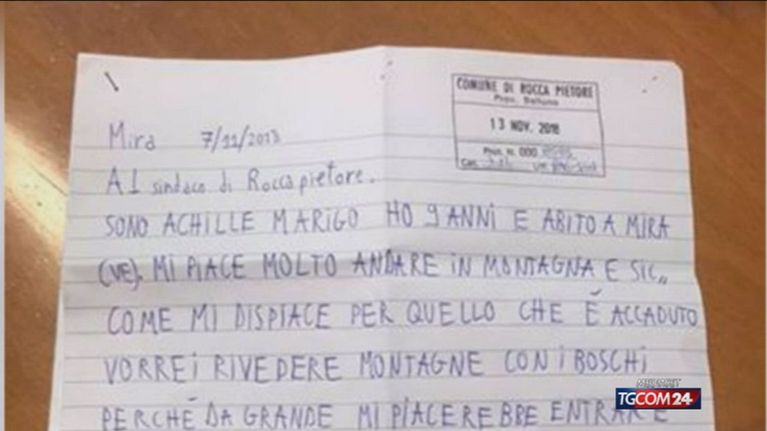 COMUNE DI ROCCA PIETORE
Prov. Belluno
13 NOV. 2018
Prot. N. 000
Cat.
Mira 7/11/2018
Al sindaco di Roccapietore.
SONO ACHILLE MARIGO HO 9 ANNI E ABITO A MIRA
(VE). MI PIACE MOLTO ANDARE IN MONTAGNA E SIC„
COME MI DISPIACE PER QUELLO CHE É ACCADUTO
VORREI RIVEDERE MONTAGNE CON I BOSCHI
PERCHÉ DA GRANDE MI PIACEREBBE ENTRARE
MEDIASET
TGCOM24